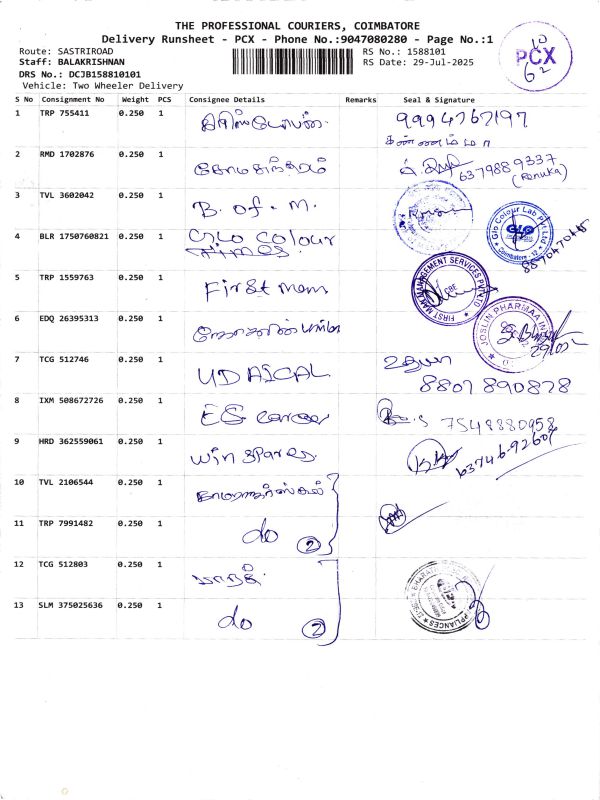 THE PROFESSIONAL COURIERS, COIMBATORE
Delivery Runsheet - PCX - Phone No.:9047080280 - Page No.:1
Route: SASTRIROAD
Staff: BALAKRISHNAN
DRS No.: DCJB158810101
Vehicle: Two Wheeler Delivery
RS No.: 1588101
RS Date: 29-Jul-2025
10
PCX
62
S No Consignment No Weight PCS Consignee Details Remarks Seal & Signature
1 TRP 755411 0.250 1 9994767197
கண்ணம்மா
2 RMD 1702876 0.250 1 6379889337
(Renuka)
3 TVL 3602042 0.250 1 B. of. M.
4 BLR 1750760821 0.250 1 GLO COLOUR
Glo Colour Lab Pvt Ltd
GLO
Coimbatore - 12
8870470445
5 TRP 1559763 0.250 1 First Mam
FIRST MAN MANAGEMENT SERVICES PVT LTD
CBE
6 EDQ 26395313 0.250 1
JOSLIN PHARMAA
7 TCG 512746 0.250 1 UDAICAL உதயா
8807890878
8 IXM 508672726 0.250 1 EG career 7548880958
9 HRD 362559061 0.250 1 Win spares 63746-92601
10 TVL 2106544 0.250 1
11 TRP 7991482 0.250 1 do 2
12 TCG 512803 0.250 1 பாரத்
BHARATH
APPLIANCES
13 SLM 375025636 0.250 1 do 2